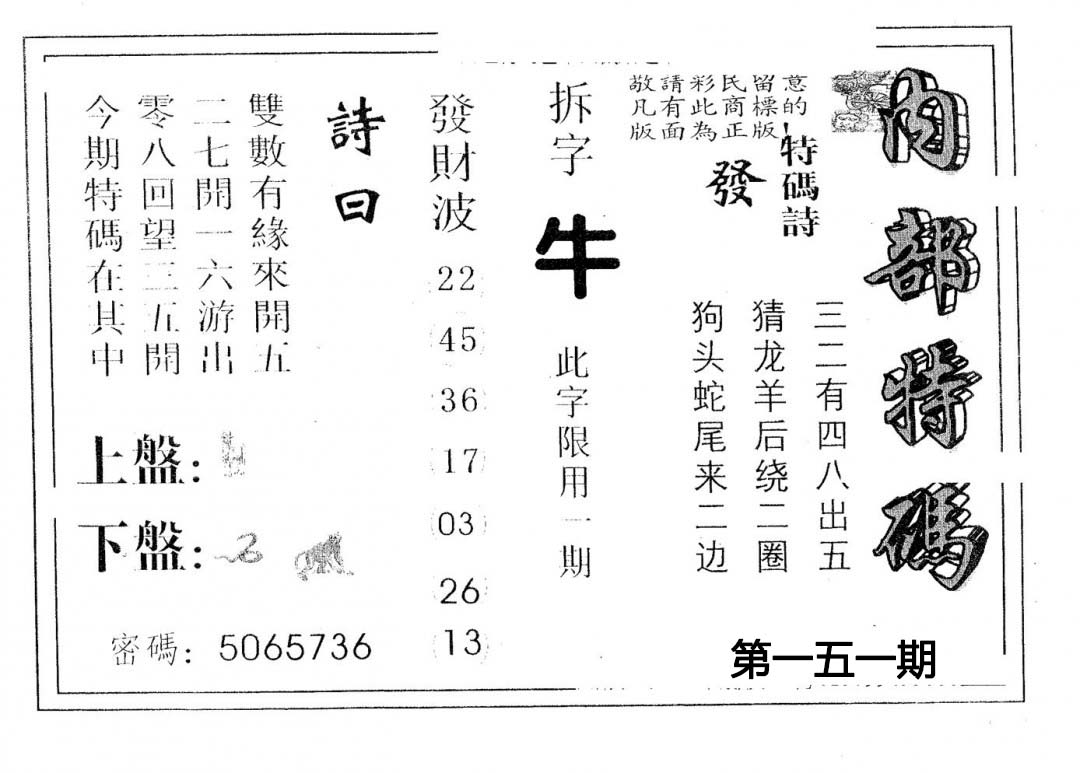 內部特碼
敬請彩民留意
凡有此商標的
版面為正版!
特碼詩
發
三二有四八出五
猜龙羊后绕二圈
狗头蛇尾来二边
第一五一期
拆字
牛
此字限用一期
發財波
22
45
36
17
03
26
13
詩曰
雙數有緣來開五
二七開一六游出
零八回望三五開
今期特碼在其中
上盤:
下盤:
密碼: 5065736